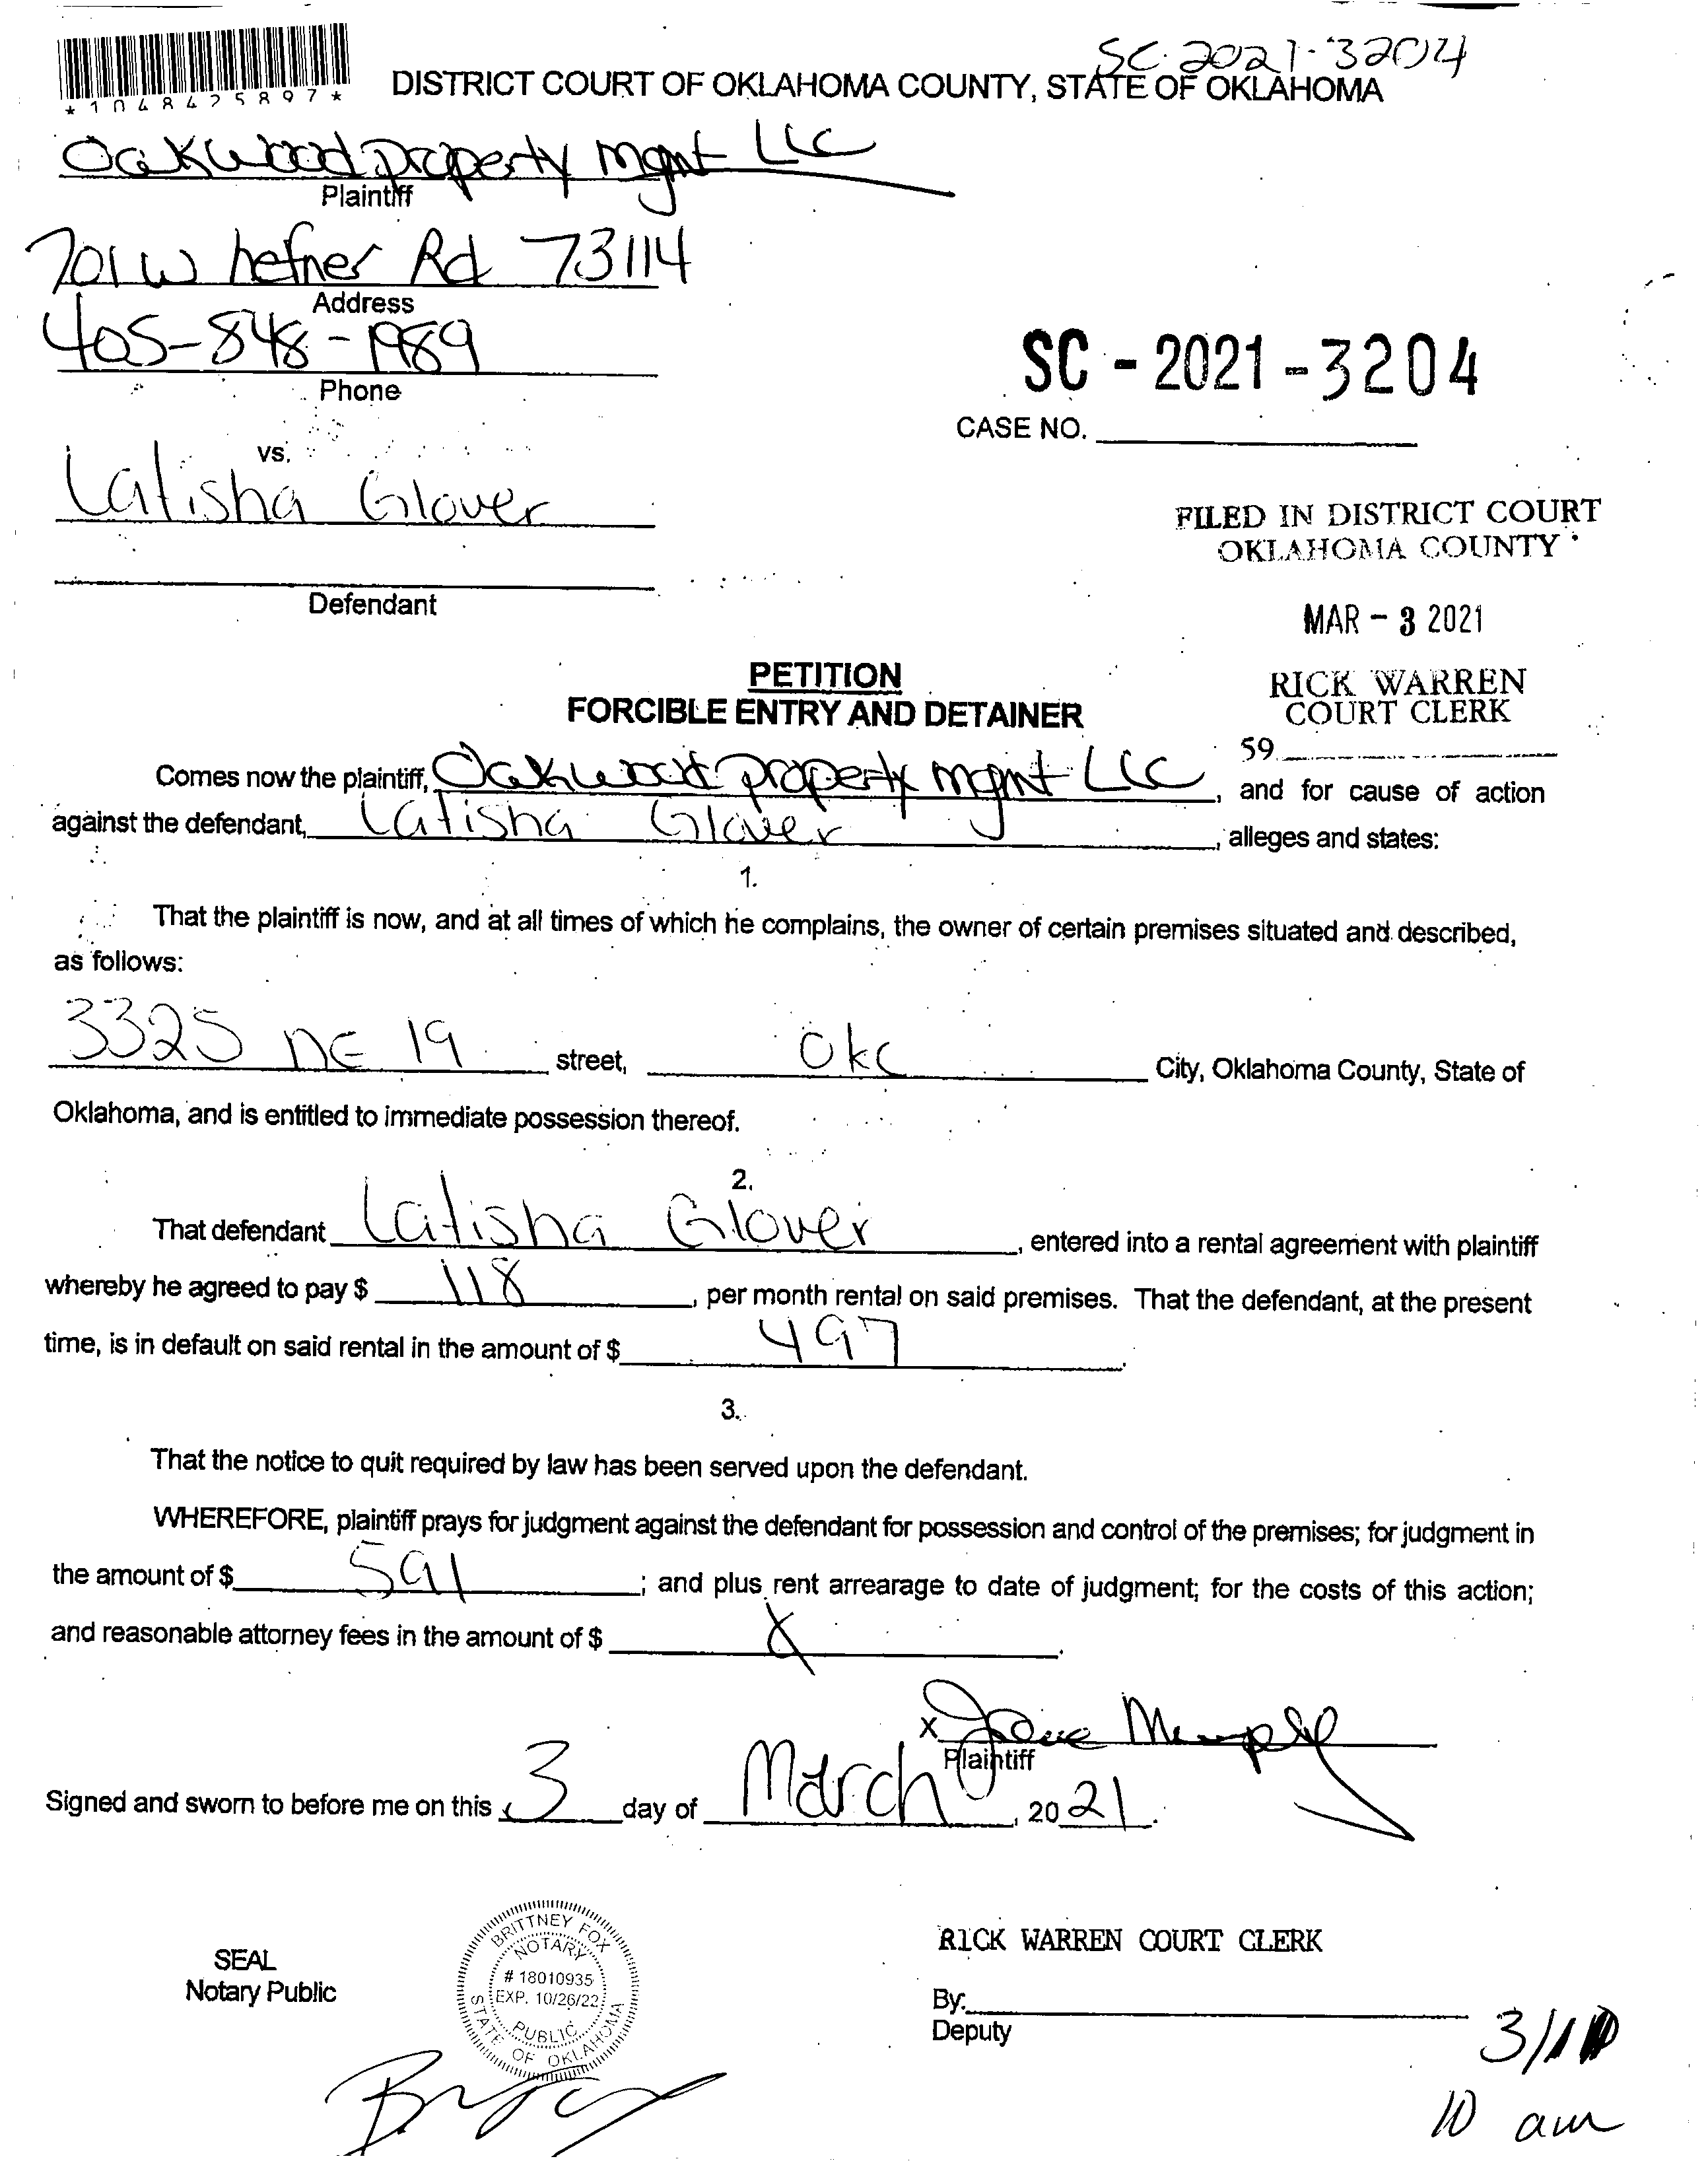 SC-2021-3204
*1048425897*
DISTRICT COURT OF OKLAHOMA COUNTY, STATE OF OKLAHOMA
Oakwood property mgmt LLC
Plaintiff
701 W hefner Rd 73114
Address
405-848-1989
Phone
SC - 2021 - 3204
CASE NO.
vs.
Latisha Glover
Defendant
FILED IN DISTRICT COURT
OKLAHOMA COUNTY
MAR - 3 2021
RICK WARREN
COURT CLERK
59
PETITION
FORCIBLE ENTRY AND DETAINER
Comes now the plaintiff, Oakwood property mgmt LLC, and for cause of action
against the defendant, Latisha Glover, alleges and states:
1.
That the plaintiff is now, and at all times of which he complains, the owner of certain premises situated and described,
as follows:
3325 NE 19 street, OKC City, Oklahoma County, State of
Oklahoma, and is entitled to immediate possession thereof.
2.
That defendant Latisha Glover, entered into a rental agreement with plaintiff
whereby he agreed to pay $ 118, per month rental on said premises. That the defendant, at the present
time, is in default on said rental in the amount of $ 497.
3.
That the notice to quit required by law has been served upon the defendant.
WHEREFORE, plaintiff prays for judgment against the defendant for possession and control of the premises; for judgment in
the amount of $ 591; and plus rent arrearage to date of judgment; for the costs of this action;
and reasonable attorney fees in the amount of $ X.
X
Plaintiff
Signed and sworn to before me on this 3 day of March, 2021.
SEAL
Notary Public
BRITTNEY FOX
NOTARY
# 18010935
EXP. 10/26/22
PUBLIC
STATE OF OKLAHOMA
RICK WARREN COURT CLERK
By:
Deputy
10 am